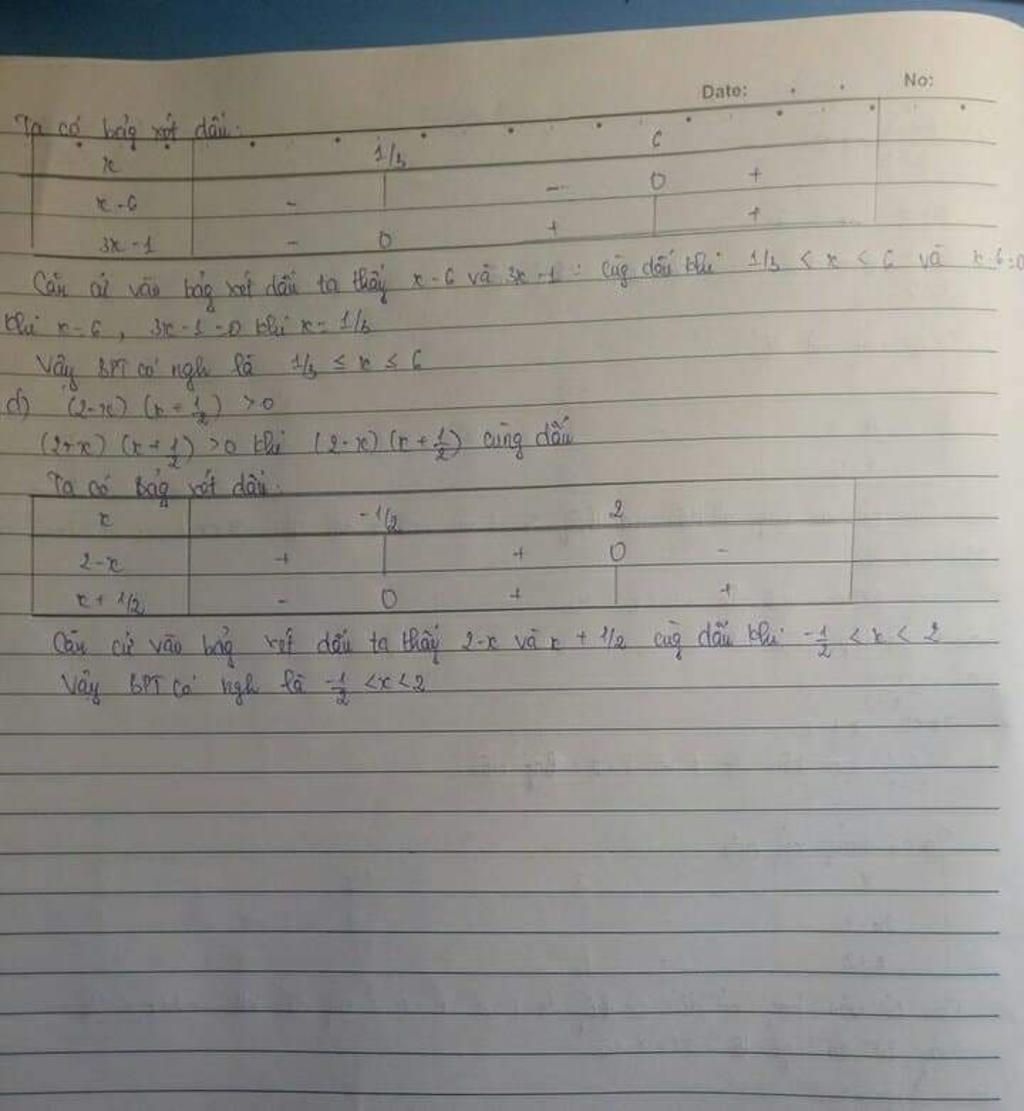 Date: No:
Ta có bảg xét dấu:
x 1/3 6
x-6 - - 0 +
3x-1 - 0 + +
Căn cứ vào bảg xét dấu ta thấy x-6 và 3x-1 : cùg dấu khi 1/3 < x < 6 và x-6=0
khi x=6, 3x-1=0 khi x=1/3
Vậy BPT có ngh là 1/3 ≤ x ≤ 6
d) (2-x) (x+1/2) >0
(2-x) (x+1/2) >0 khi (2-x) (x+1/2) cùng dấu
Ta có bảg xét dấu:
x -1/2 2
2-x + + 0 -
x+1/2 - 0 + +
Căn cứ vào bảg xét dấu ta thấy 2-x và x+1/2 cùg dấu khi -1/2 < x < 2
Vậy BPT có ngh là -1/2 <x<2